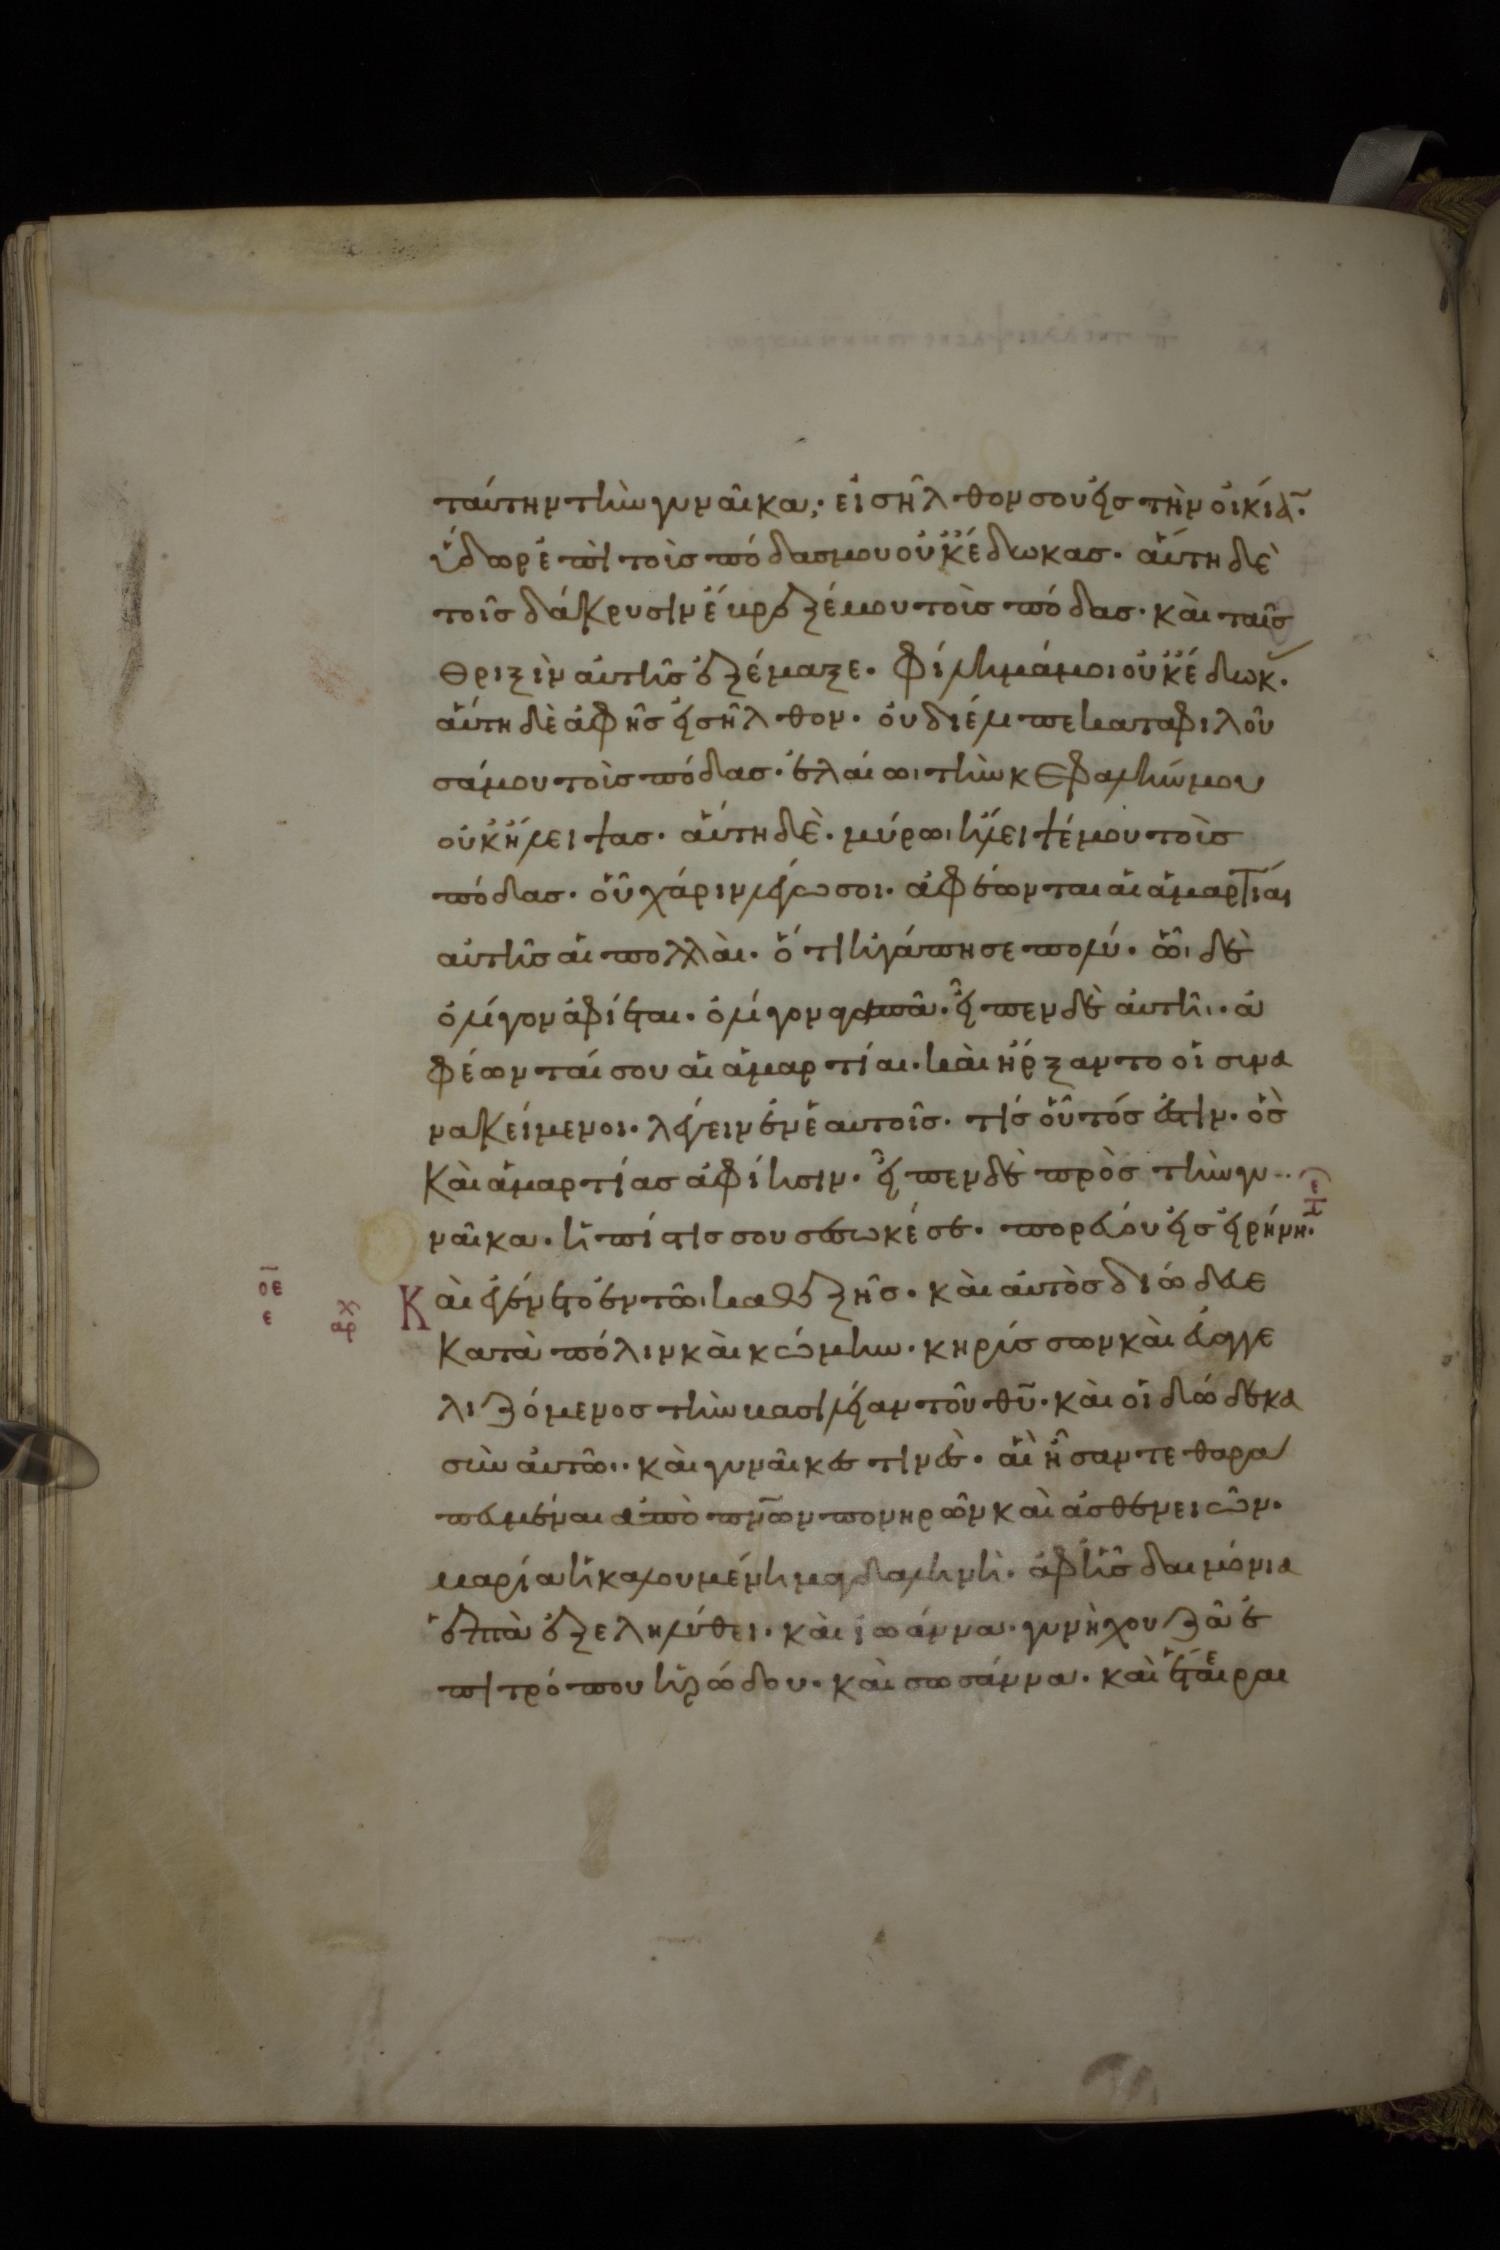 ταύτην τὴν γυναῖκα; εἰσῆλθον σου εἰς τὴν οἰκίαν̃·
ὕδωρ ἐπὶ τοὺς πόδας μου οὐκ ἔδωκας· αὕτη δὲ
τοῖς δάκρυσιν ἔβρεξέ μου τοὺς πόδας· καὶ ταῖς
θριξὶν αὐτῆς ἐξέμαξε· φίλημά μοι οὐκ ἔδωκ·
αὕτη δὲ ἀφῆς εἰσῆλθον· οὐ διέλιπε καταφιλοῦ
σά μου τοὺς πόδας· ἐλαίωι τὴν κεφαλήν μου
οὐκ ἤλειψας· αὕτη δὲ· μύρωι ἤλειψέ μου τοὺς
πόδας· οὗ χάριν λέγω σοι· ἀφέωνται αἱ ἁμαρτίαι
αὐτῆς αἱ πολλαὶ· ὅτι ἠγάπησε πολύ· ὧι δὲ
ὀλίγον ἀφίεται· ὀλίγον ἀγαπᾶ· εἶπεν δὲ αὐτῆι· ἀ
φέωνταί σου αἱ ἁμαρτίαι· καὶ ἤρξαντο οἱ συνα
νακείμενοι· λέγειν ἐν ἑαυτοῖς· τίς οὗτός ἐστιν· ὃς
καὶ ἁμαρτίας ἀφίησιν· εἶπεν δὲ πρὸς τὴν γυ
ναῖκα· ἡ πίστις σου σέσωκέ σε· πορεύου εἰς εἰρήνη·
οε
ε
αρχ
Καὶ ἐγένετο ἐν τῶι καθεξῆς· καὶ αὐτὸς διώδευε
κατὰ πόλιν καὶ κώμην· κηρύσσων καὶ εὐαγγε
λιζόμενος τὴν βασιλείαν τοῦ θυ̃· καὶ οἱ δώδεκα
σὺν αὐτῶι· καὶ γυναῖκες τινὲς· αἳ ἦσαν τεθερα
πευμέναι ἀπὸ πνω̃ν πονηρῶν καὶ ἀσθενειῶν·
μαρία ἡ καλουμένη μαγδαληνὴ· ἀφ' ἧς δαιμόνια
ἑπτὰ ἐξεληλύθει· καὶ ἰωάννα· γυνὴ χουζᾶ ἐ
πιτρόπου ἡρώδου· καὶ σωσάννα· καὶ ἕτεραι